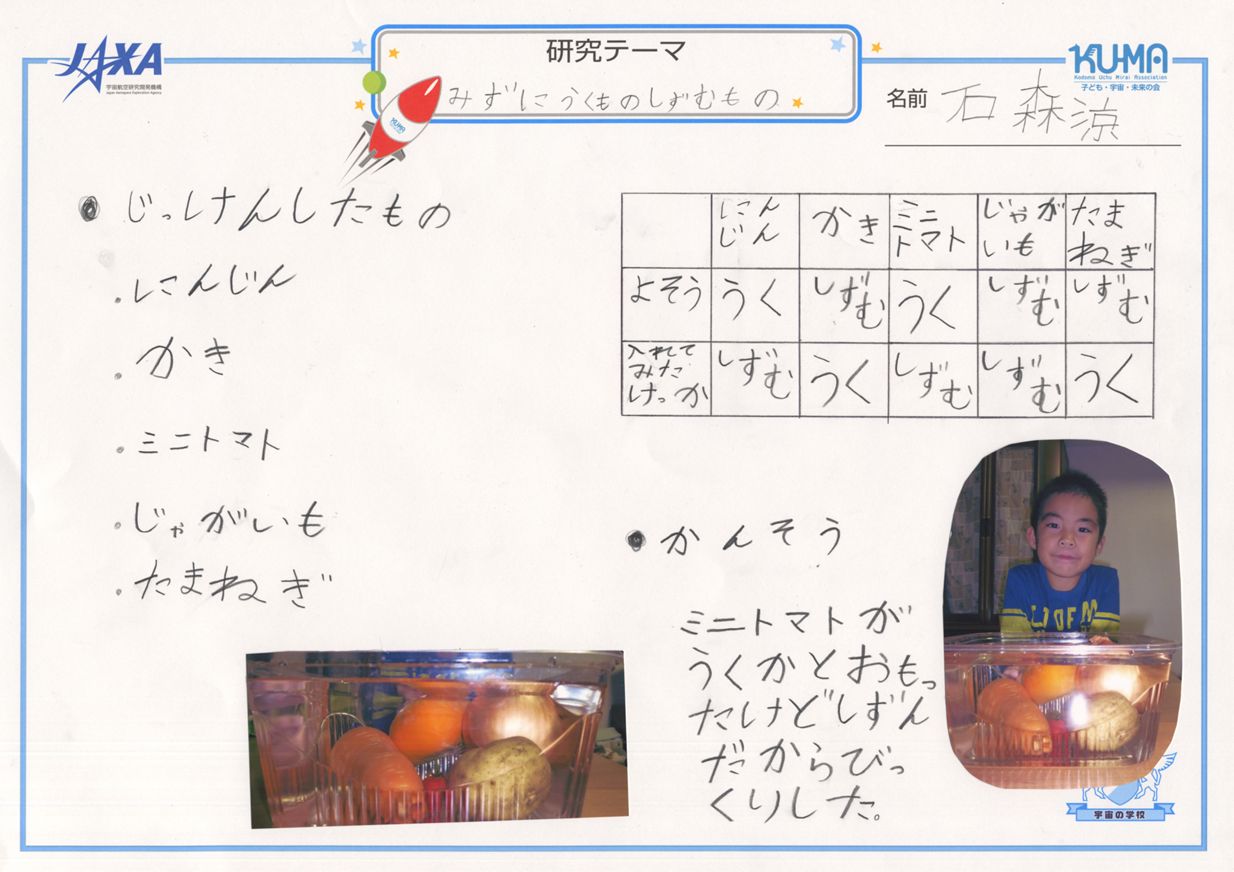 JAXA
宇宙航空研究開発機構
Japan Aerospace Exploration Agency
研究テーマ
みずにうくものしずむもの
KUMA
KUMA
Kodomo Uchu Mirai Association
子ども・宇宙・未来の会
名前 石森涼
じっけんしたもの
・にんじん
・かき
・ミニトマト
・じゃがいも
・たまねぎ
にんじん かき ミニトマト じゃがいも たまねぎ
よそう うく しずむ うく しずむ しずむ
入れてみたけっか しずむ うく しずむ しずむ うく
かんそう
ミニトマトが
うくかとおもっ
たけどしずん
だからびっ
くりした。
宇宙の学校